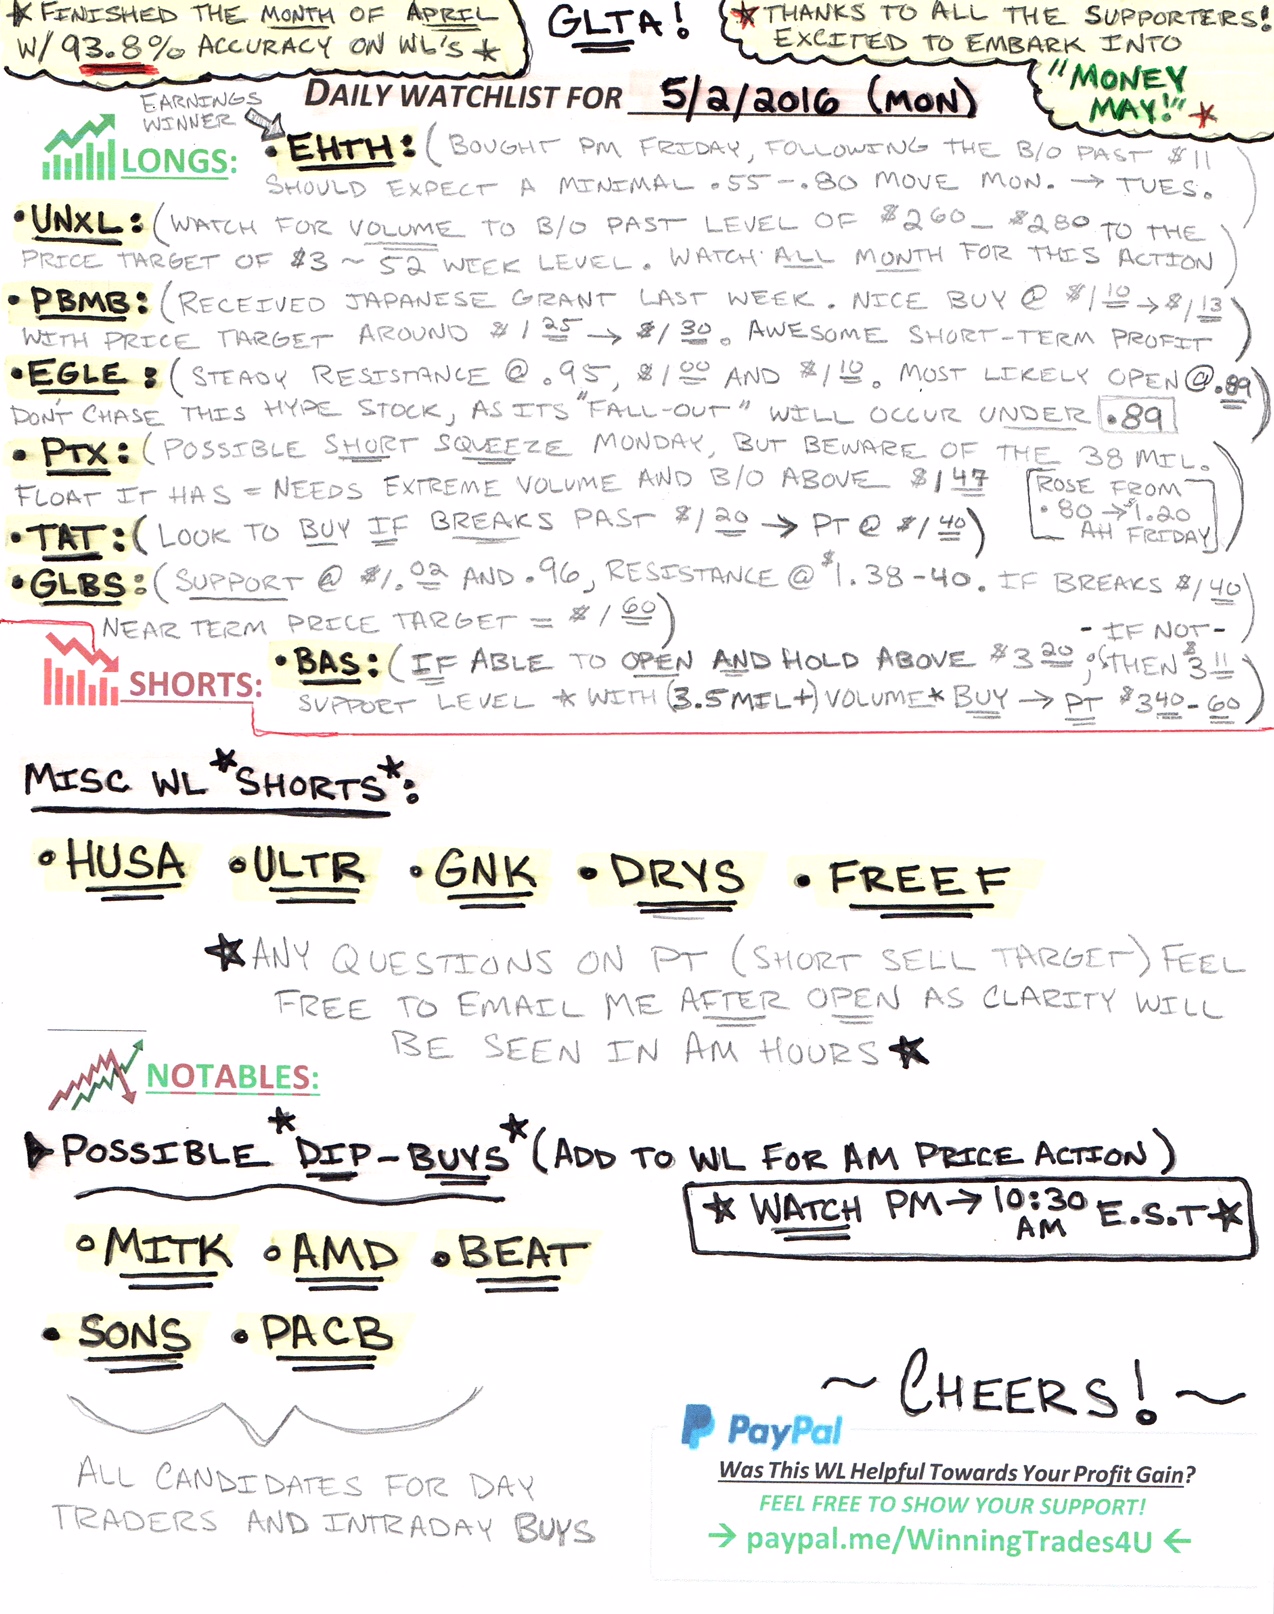 ★ FINISHED THE MONTH OF APRIL
W/ 93.8% ACCURACY ON WL'S ★
GLTA!
★ THANKS TO ALL THE SUPPORTERS!
EXCITED TO EMBARK INTO
"MONEY
MAY!" ★
DAILY WATCHLIST FOR 5/2/2016 (MON)
EARNINGS
WINNER
LONGS:
• EHTH: (BOUGHT PM FRIDAY, FOLLOWING THE B/O PAST $11
SHOULD EXPECT A MINIMAL .55-.80 MOVE MON. → TUES.)
• UNXL: (WATCH FOR VOLUME TO B/O PAST LEVEL OF $260 - $280 TO THE
PRICE TARGET OF $3 ~ 52 WEEK LEVEL. WATCH ALL MONTH FOR THIS ACTION)
• PBMB: (RECEIVED JAPANESE GRANT LAST WEEK. NICE BUY @ $1/10 → $1/13
WITH PRICE TARGET AROUND $1 25 → $1/30. AWESOME SHORT-TERM PROFIT)
• EGLE: (STEADY RESISTANCE @ .95, $1/00 AND $1/10. MOST LIKELY OPEN @ .89
DON'T CHASE THIS HYPE STOCK, AS ITS "FALL-OUT" WILL OCCUR UNDER .89)
• PTX: (POSSIBLE SHORT SQUEEZE MONDAY, BUT BEWARE OF THE 38 MIL.
FLOAT IT HAS = NEEDS EXTREME VOLUME AND B/O ABOVE $1 47
[ROSE FROM
.80 → $1.20
AH FRIDAY])
• TAT: (LOOK TO BUY IF BREAKS PAST $1/20 → PT @ $1/40)
• GLBS: (SUPPORT @ $1.02 AND .96, RESISTANCE @ $1.38-40. IF BREAKS $1/40
NEAR TERM PRICE TARGET = $1 60)
SHORTS:
- IF NOT -
• BAS: (IF ABLE TO OPEN AND HOLD ABOVE $3 20, THEN $3 11
SUPPORT LEVEL ★ WITH (3.5 MIL+) VOLUME ★ BUY → PT $340-60)
MISC WL *SHORTS*:
• HUSA • ULTR • GNK • DRYS • FREEF
★ ANY QUESTIONS ON PT (SHORT SELL TARGET) FEEL
FREE TO EMAIL ME AFTER OPEN AS CLARITY WILL
BE SEEN IN AM HOURS ★
NOTABLES:
▶ POSSIBLE *DIP-BUYS* (ADD TO WL FOR AM PRICE ACTION)
★ WATCH PM → 10:30 AM E.S.T ★
• MITK • AMD • BEAT
• SONS • PACB
~ CHEERS! ~
ALL CANDIDATES FOR DAY
TRADERS AND INTRADAY BUYS
PayPal
Was This WL Helpful Towards Your Profit Gain?
FEEL FREE TO SHOW YOUR SUPPORT!
→ paypal.me/WinningTrades4U ←